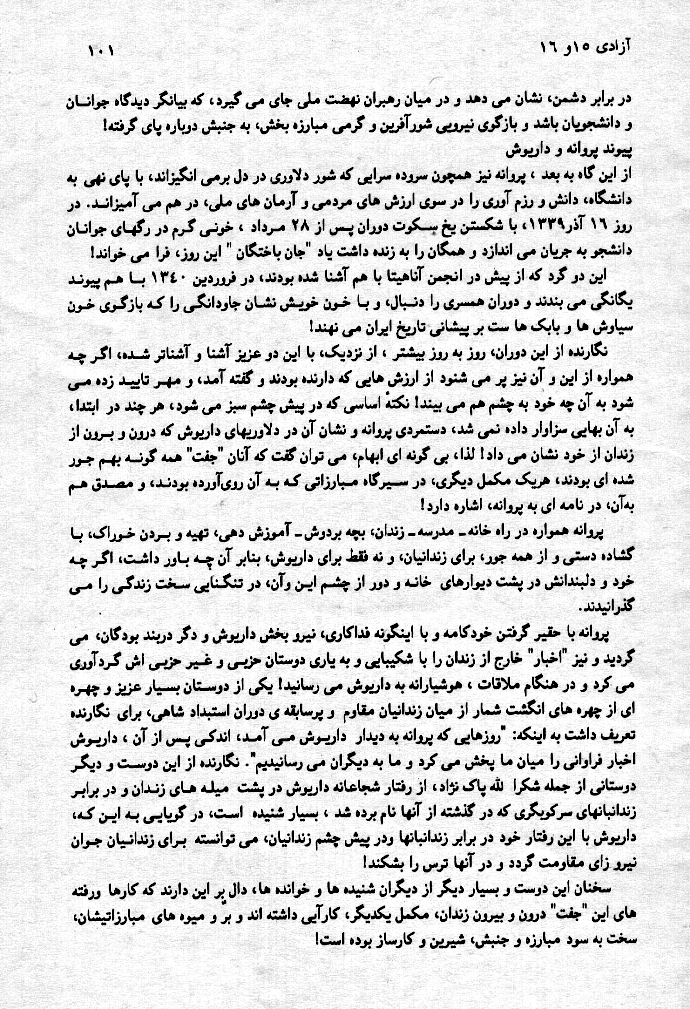 آزادی ۱۵و ۱۶
۱۰۱
در برابر دشمن، نشان می دهد و در میان رهبران نهضت ملی جای می گیرد، که بیانگر دیدگاه جوانـان
و دانشجویان باشد و بازگوی نیرویی شورآفرین و گرمی مبارزه بخش، به جنبش دوباره پای گرفته!
پیوند پروانه و داریوش
از این گاه به بعد ، پروانه نیز همچون سروده سرایی که شور دلاوری در دل برمی انگیزاند، با پای نهی به
دانشگاه، دانش و رزم آوری را در سوی ارزش های مردمی و آرمان های ملی، در هم می آمیزانـد. در
روز ۱۶ آذر۱۳۳۹، با شکستن یخ سکوت دوران پس از ۲۸ مرداد ، خونی گـرم در رگهـای جوانـان
دانشجو به جریان می اندازد و همگان را به زنده داشت یاد "جان باختگان " این روز، فرا می خواند!
این دو گرد که از پیش در انجمن آناهیتا با هم آشنا شده بودند، در فروردین ۱۳۴۰ بـا هـم پیونـد
یگانگی می بندند و دوران همسری را دنبـال، و بـا خـون خویـش نشـان جاودانگـی را کـه بازگـوی خـون
سیاوش ها و بابک ها ست بر پیشانی تاریخ ایران می نهند!
نگارنده از این دوران، روز به روز بیشتر ، از نزدیک، با این دو عزیز آشنا و آشناتر شـده، اگـر چـه
همواره از این و آن نیز پر می شنود از ارزش هایی که دارنده بودند و گفته آمد، و مهـر تاییـد زده مـی
شود به آن چه خود به چشم هم می بیند! نکتهٔ اساسی که در پیش چشم سبز می شود، هر چند در ابتدا،
به آن بهایی سزاوار داده نمی شد، دستمردی پروانه و نشان آن در دلاوریهای داریوش که درون و برون از
زندان از خود نشان می داد! لذا، بی گونه ای ابهام، می توان گفت که آنان "جفت" همه گونـه بهـم جـور
شده ای بودند، هریک مکمل دیگری، در سـیرگاه مبـارزاتی کـه بـه آن روی‌آورده بودنـد، و مصـدق هـم
به‌آن، در نامه ای به پروانه، اشاره دارد!
پروانه همواره در راه خانه- مدرسه- زندان، بچه بردوش- آموزش دهی، تهیه و بـردن خـوراک، بـا
گشاده دستی و از همه جور، برای زندانیان، و نه فقط برای داریوش، بنابر آن چـه بـاور داشـت، اگـر چـه
خود و دلبندانش در پشت دیوارهای خانـه و دور از چشـم ایـن وآن، در تنگنـایی سـخت زندگـی را مـی
گذرانیدند.
پروانه با حقیر گرفتن خودکامه و با اینگونه فداکاری، نیرو بخش داریوش و دگر دربند بودگان، می
گردید و نیز "اخبار" خارج از زندان را با شکیبایی و به یاری دوستان حزبـی و غـیر حزبـی اش گـردآوری
می کرد و در هنگام ملاقات ، هوشیارانه به داریوش می رسانید! یکی از دوسـتان بسـیار عزیـز و چهـره
ای از چهره های انگشت شمار از میان زندانیان مقاوم و پرسابقه ی دوران استبداد شاهی، برای نگارنده
تعریف داشت به اینکه: "روزهایی که پروانه به دیـدار داریـوش مـی آمـد، اندکـی پـس از آن ، داریـوش
اخبار فراوانی را میان ما پخش می کرد و ما به دیگران می رسانیدیم". نگارنده از این دوست و دیگـر
دوستانی از جمله شکرا لله پاک نژاد، از رفتار شجاعانه داریوش در پشت میلـه هـای زنـدان و در برابـر
زندانبانهای سرکوبگری که در گذشته از آنها نام برده شد ، بسیار شنیده است، در گویایی بـه ایـن کـه،
داریوش با این رفتار خود در برابر زندانبانها ودر پیش چشم زندانیان، می توانسته برای زندانیـان جـوان
نیرو زای مقاومت گردد و در آنها ترس را بشکند!
سخنان این دوست و بسیار دیگر از دیگران شنیده ها و خوانده ها، دال بر این دارند که کارها ورفته
های این "جفت" درون و بیرون زندان، مکمل یکدیگر، کارآیی داشته اند و بر و میوه های مبارزاتیشان،
سخت به سود مبارزه و جنبش، شیرین و کارساز بوده است!